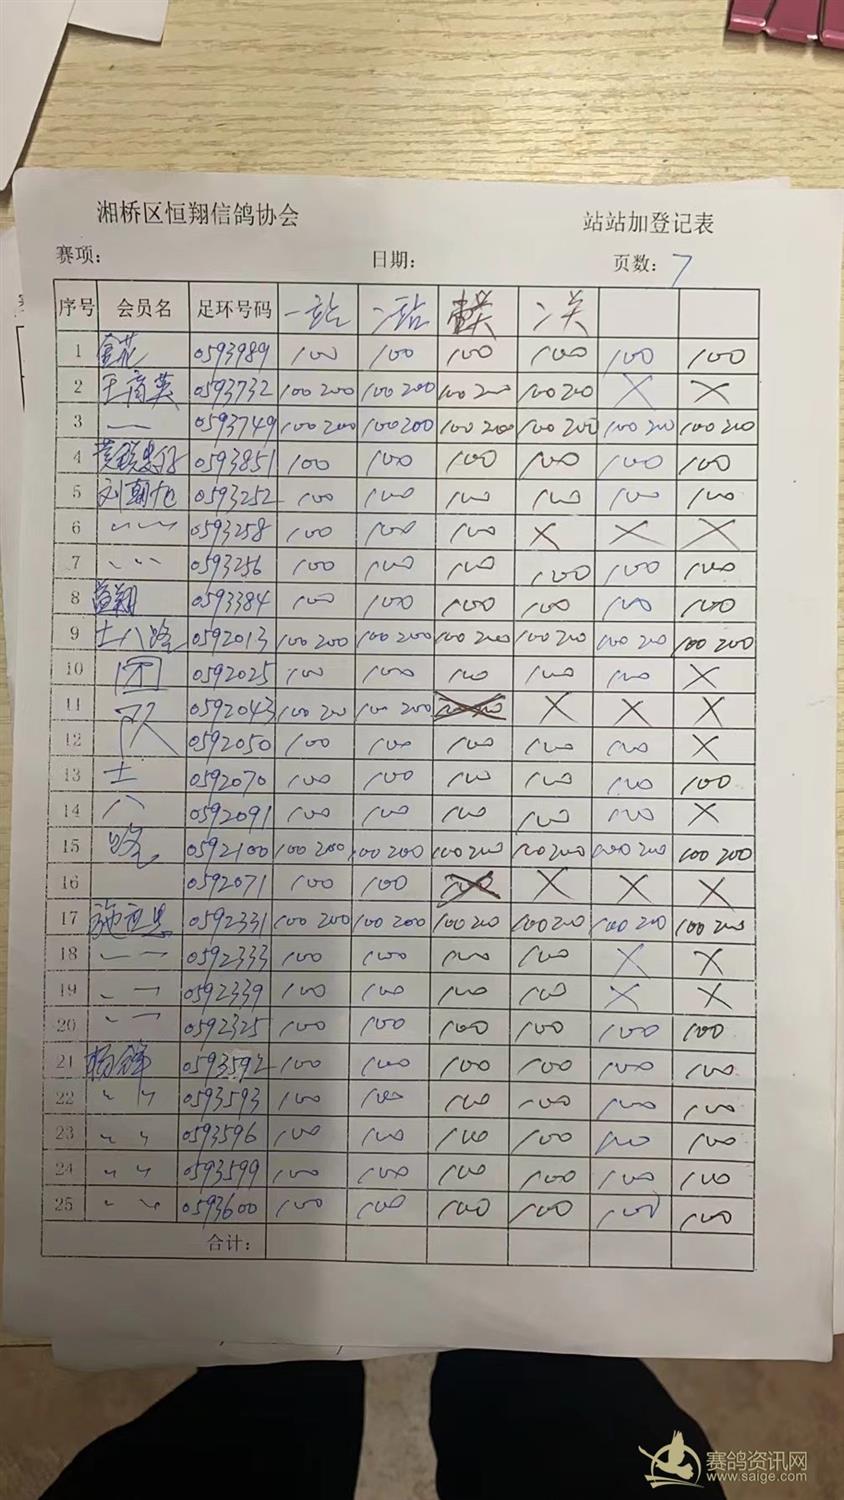 湘桥区恒翔信鸽协会 站站加登记表
赛项: 日期: 页数: 7
序号 会员名 足环号码 一站 二站 关 二关
1 金花 0593989 100 100 100 100 100 100
2 王商英 0593732 100 200 100 200 100 200 100 200 X X
3 — 0593749 100 200 100 200 100 200 100 200 100 200 100 200
4 0593851 100 100 100 100 100 100
5 刘朝旭 0593252 100 100 100 100 100 100
6 〃 〃 0593258 100 100 100 X X X
7 〃 〃 0593256 100 100 100 100 100 100
8 翔 0593384 100 100 100 100 100 100
9 士八路 0592013 100 200 100 200 100 200 100 200 100 200 100 200
10 团 0592025 100 100 100 100 100 X
11 队 0592043 100 200 100 200 X X X
12 0592050 100 100 100 100 100 X
13 士 0592070 100 100 100 100 100 100
14 八 0592091 100 100 100 100 100 X
15 路 0592100 100 200 100 200 100 200 100 200 100 200 100 200
16 0592071 100 100 100 X X X
17 施 0592331 100 200 100 200 100 200 100 200 100 200 100 200
18 〃 0592333 100 100 100 100 X X
19 〃 0592339 100 100 100 100 X X
20 〃 0592325 100 100 100 100 100 100
21 杨锋 0593592 100 100 100 100 100 100
22 〃 〃 0593593 100 100 100 100 100 100
23 〃 〃 0593596 100 100 100 100 100 100
24 〃 〃 0593599 100 100 100 100 100 100
25 〃 〃 0593600 100 100 100 100 100 100
合计:
赛鸽资讯网
www.saige.com